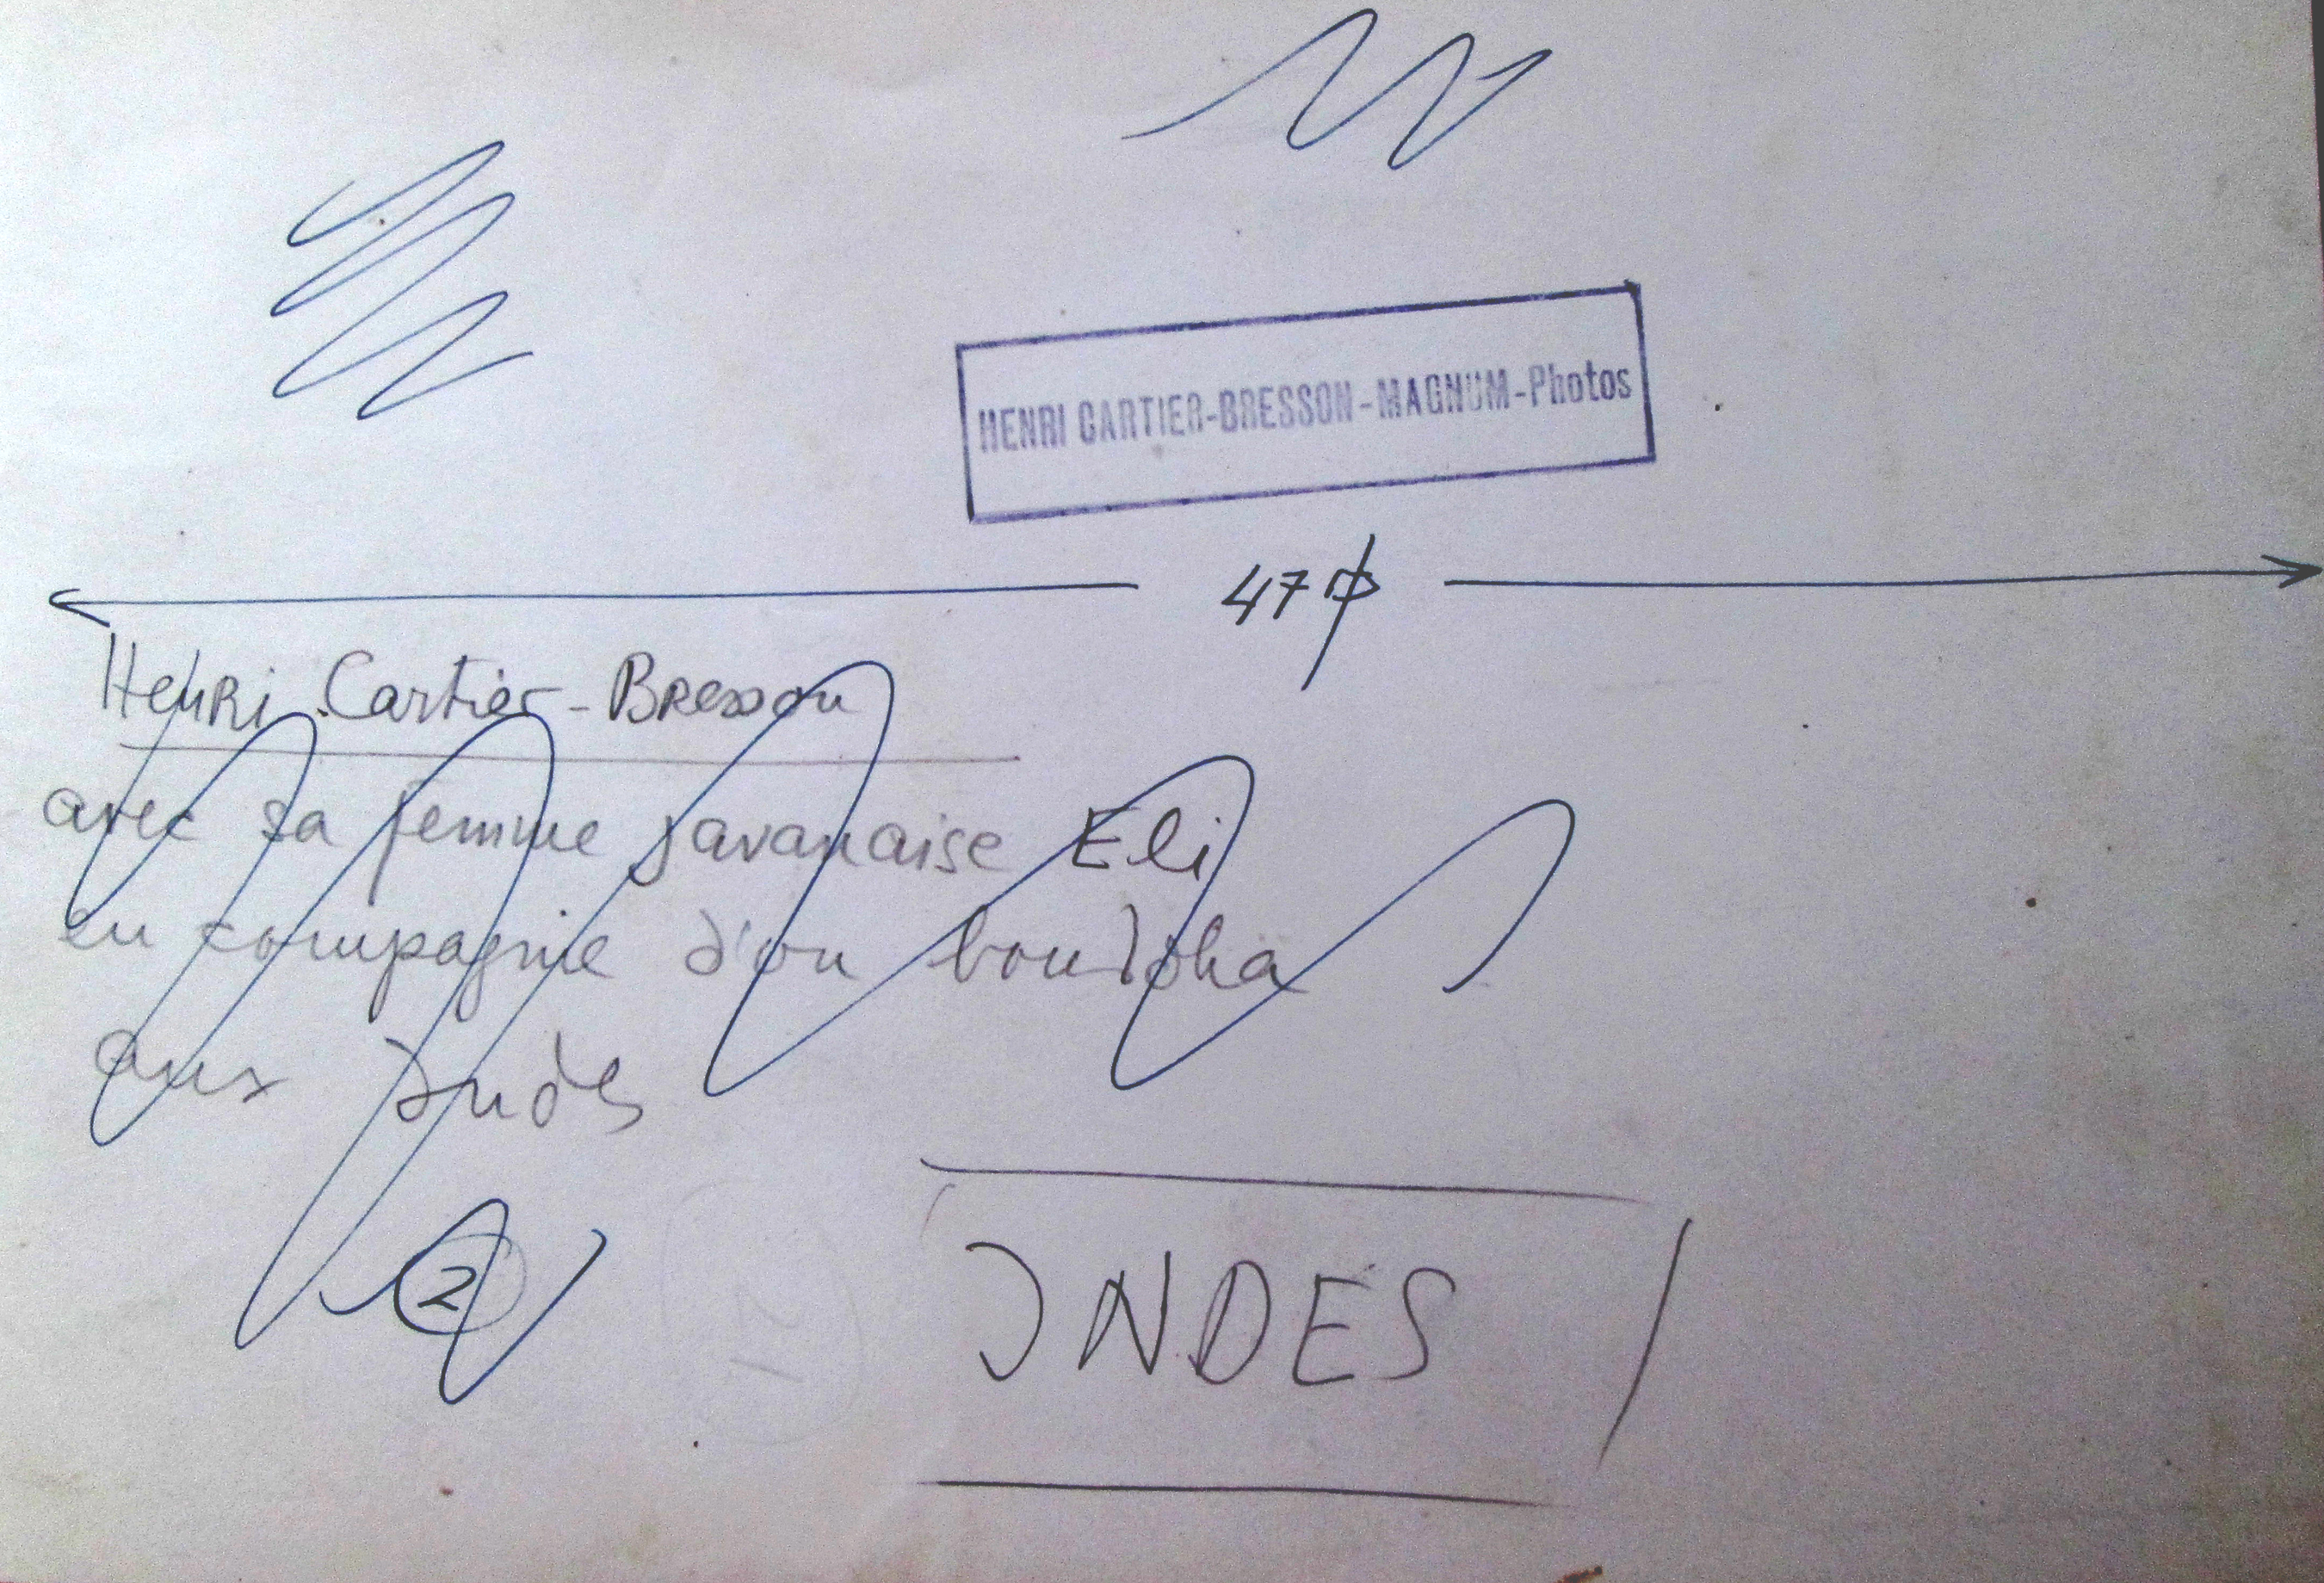 HENRI CARTIER-BRESSON-MAGNUM-Photos
47
Henri Cartier-Bresson
avec sa femme javanaise Eli
en compagnie d'un bouddha
aux Indes
2
INDES